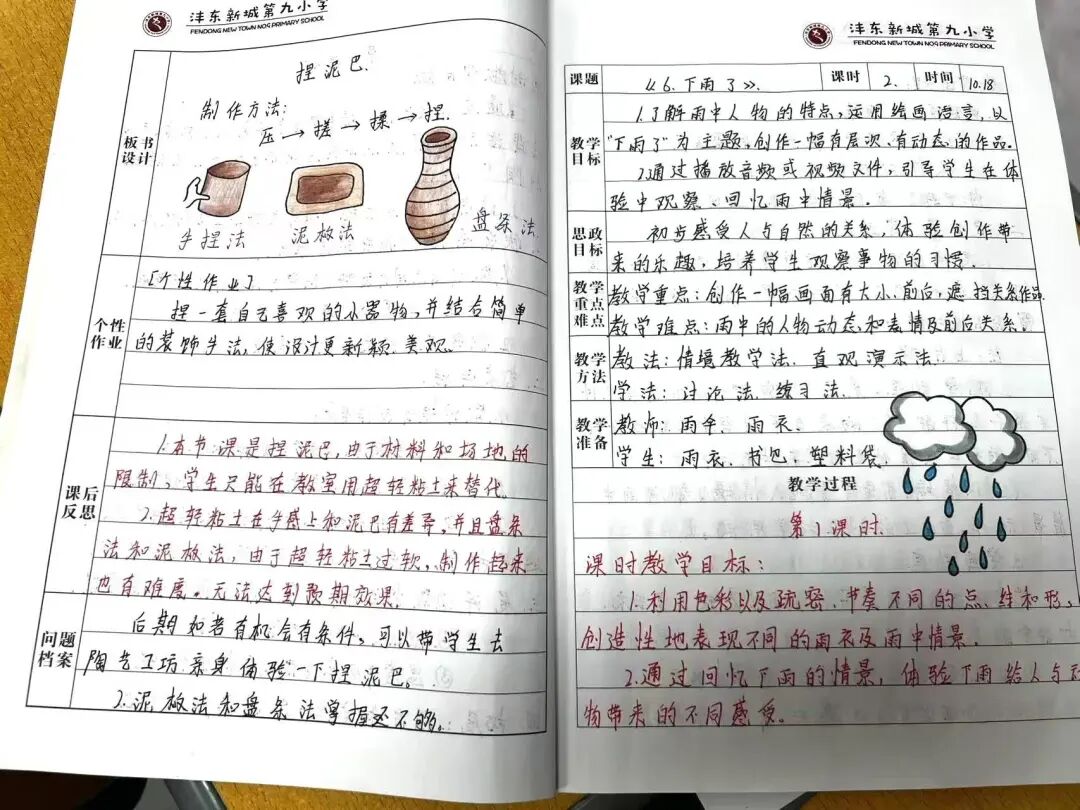 沣东新城第九小学
FENDONG NEW TOWN NO9 PRIMARY SCHOOL
板书
设计
捏泥巴.
制作方法:
压→搓→揉→捏.
手捏法
泥板法
盘条法
个性
作业
[个性作业]
捏一套自己喜欢的小器物,并结合简单
的装饰手法,使设计更新颖、美观。
课后
反思
1.本节课是捏泥巴,由于材料和场地的
限制,学生只能在教室用超轻粘土来替代。
2.超轻粘土在手感上和泥巴有差异,并且盘条
法和泥板法,由于超轻粘土过软,制作起来
也有难度。无法达到预期效果.
问题
档案
后期如若有机会有条件,可以带学生去
陶艺工坊亲身体验一下捏泥巴。
2.泥板法和盘条法掌握还不够。
沣东新城第九小学
FENDONG NEW TOWN NO9 PRIMARY SCHOOL
课题
《6.下雨了》.
课时
2.
时间
10.18
教学
目标
1.了解雨中人物的特点,运用绘画语言,以
"下雨了"为主题,创作一幅有层次、有动态的作品。
2.通过播放音频或视频文件,引导学生在体
验中观察、回忆雨中情景.
思政
目标
初步感受人与自然的关系,体验创作带
来的乐趣,培养学生观察事物的习惯.
教学
重点
难点
教学重点:创作一幅画面有大小、前后,遮挡关系作品.
教学难点:雨中的人物动态和表情及前后关系.
教学
方法
教法:情境教学法、直观演示法.
学法:讨论法、练习法.
教学
准备
教师:雨伞、雨衣.
学生:雨衣、书包、塑料袋.
教学过程
第1课时.
课时教学目标:
1.利用色彩以及疏密、节奏不同的点、线和形,
创造性地表现不同的雨衣及雨中情景.
2.通过回忆下雨的情景,体验下雨给人与
物带来的不同感受。